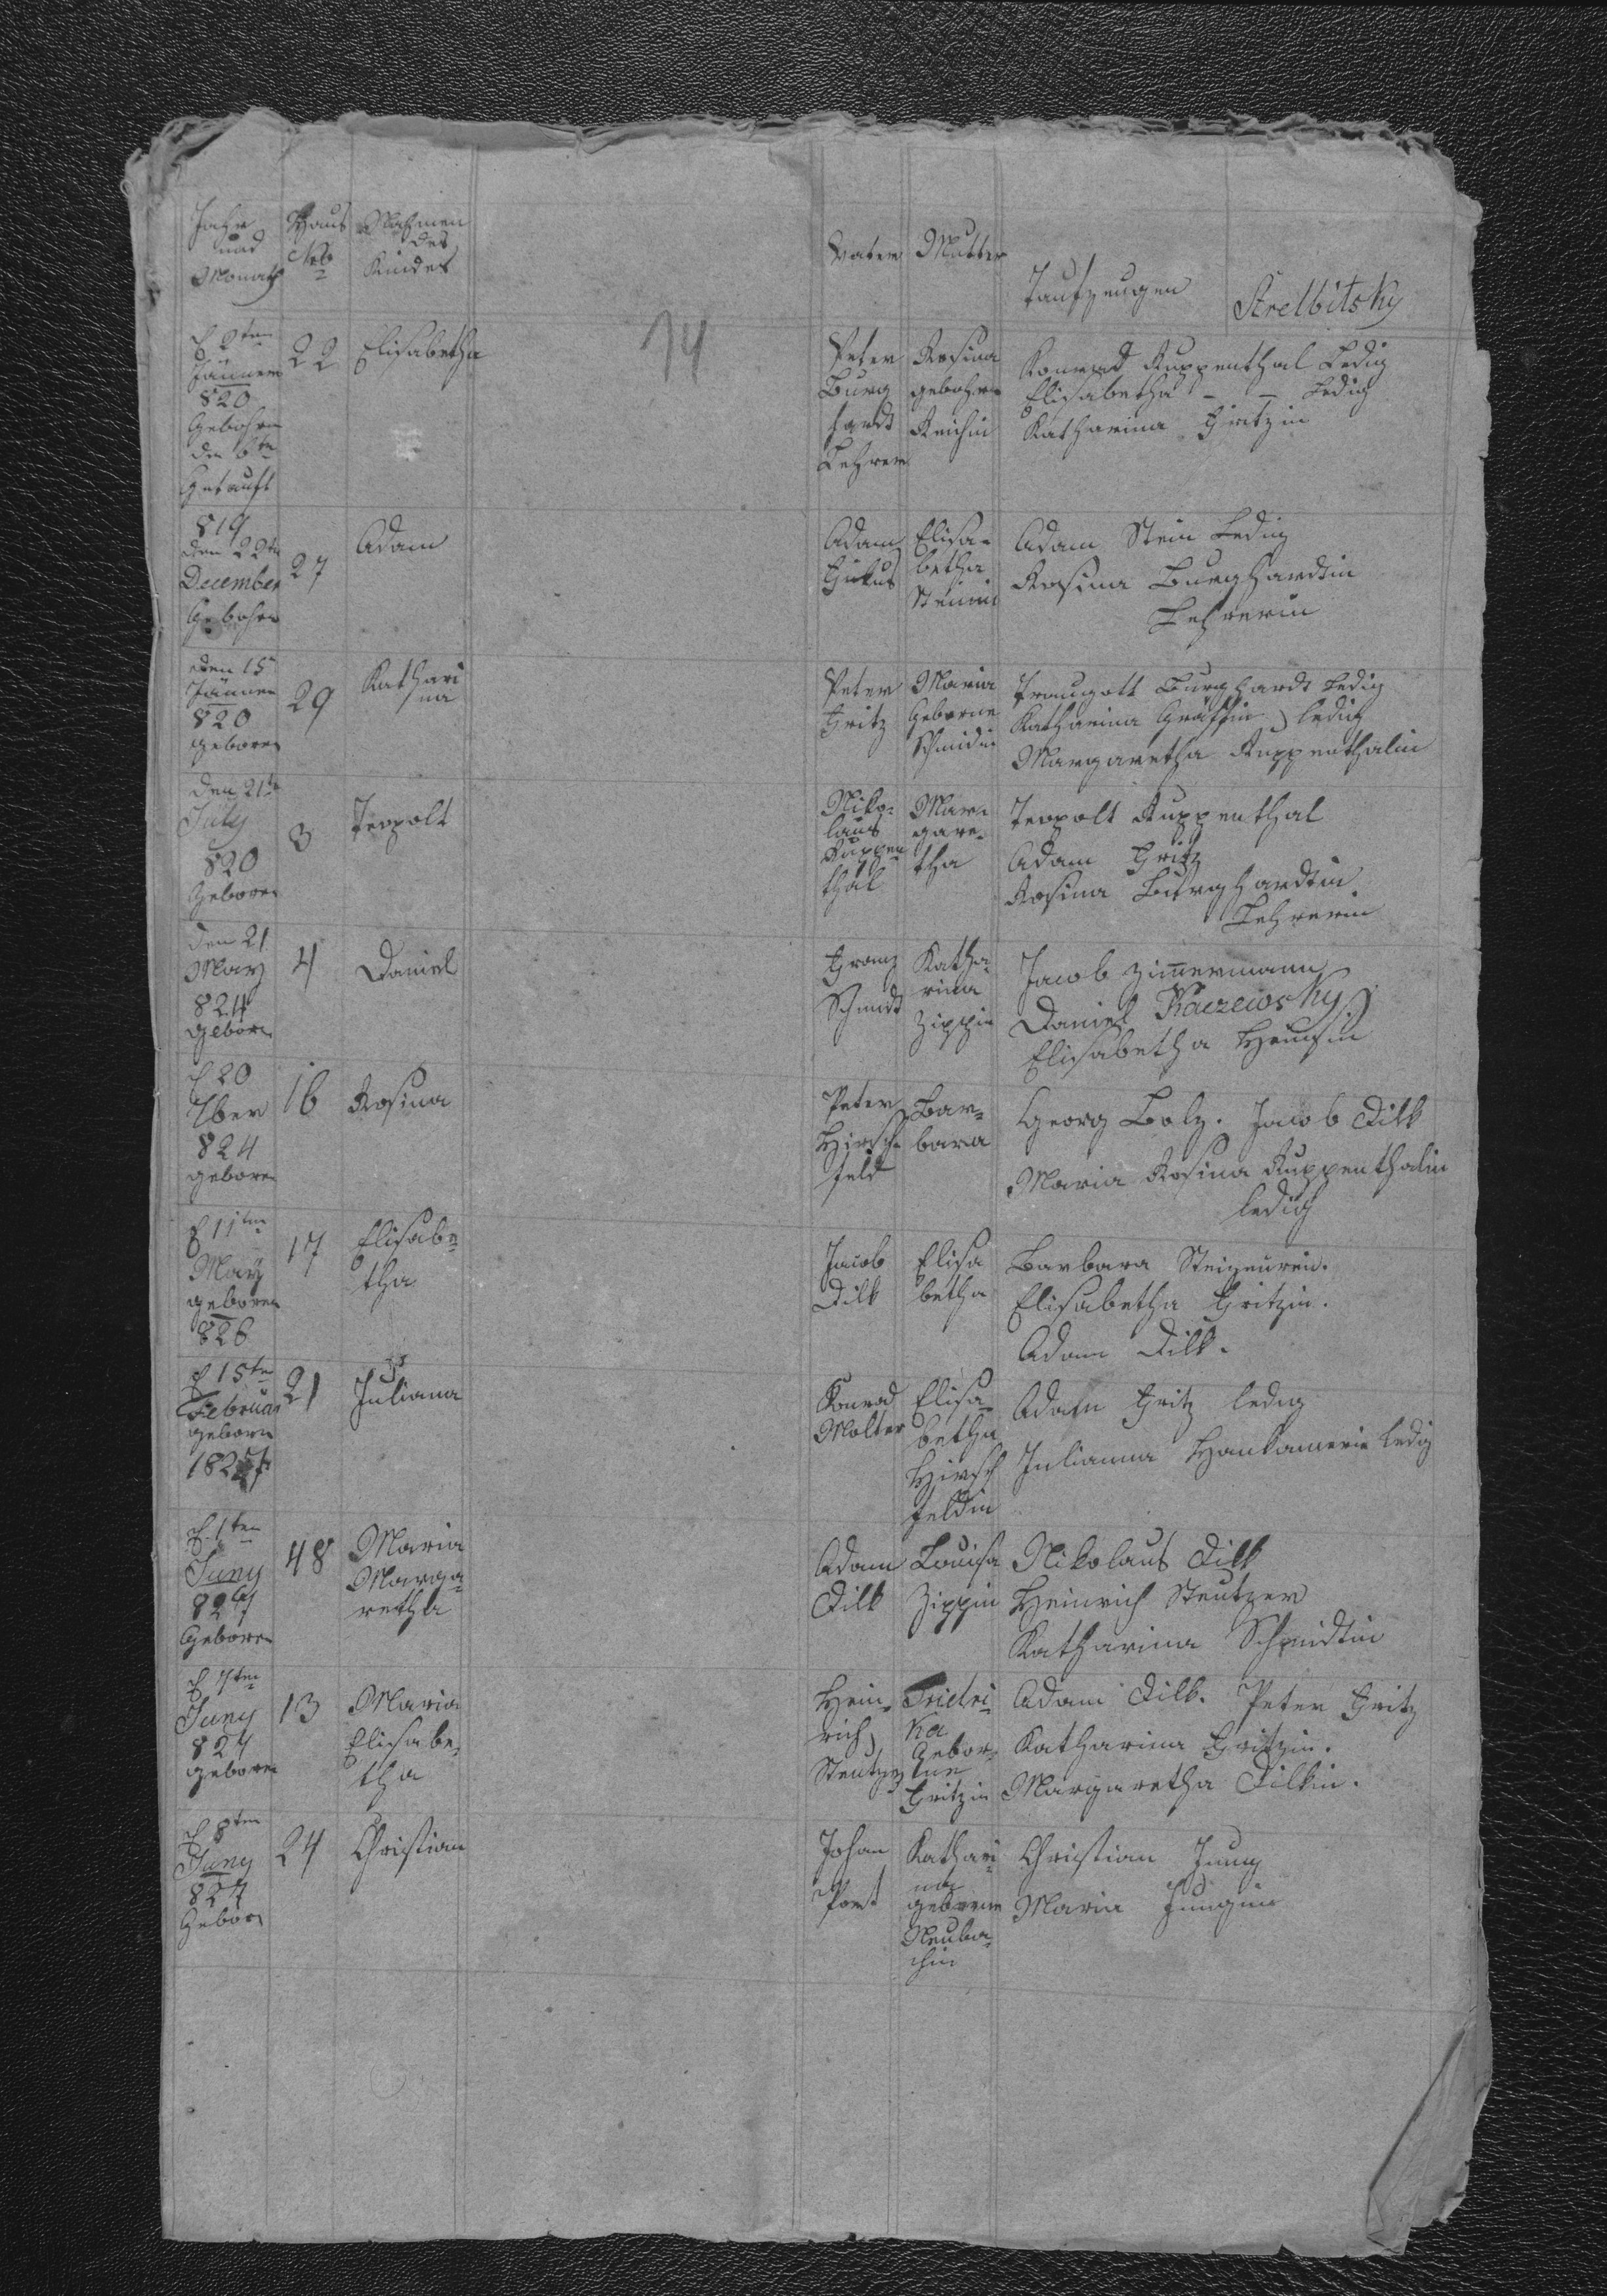 Jahr und Monath
Haus Nro
Nahmen des Kindes
Vater
Mutter
Taufzeugen
Strelbitsky
14
d 2ten Jänner 820 Gebohren den 6ten Getauft
22
Elisabetha
Peter Burghardt Lehrer
Rosina gebohrn Reichin
Konrad Ruppenthal Ledig
Elisabetha – – Ledig
Katharina Fritzin
819 den 22ten December Gebohren
27
Adam
Adam
Elisabetha Steinin
Adam Stein Ledig
Rosina Burghardtin
Lehrerin
den 15n Jänner 820 geboren
29
Katharina
Peter Fritz
Maria Geborne Schmidin
Traugott Burghardt Ledig
Katharina Gräffin ledig
Margaretha Ruppenthalin
den 21ten July 820 Geboren
3
Leopolt
Nikolaus Ruppenthal
Margaretha
Leopolt Ruppenthal
Adam Fritz
Rosina Burghardtin
Lehrerin
den 21 May 824 geborn
4
Daniel
Franz Schmidt
Katharina Zippin
Jacob Zimermann
Daniel Kaczewsky
Elisabetha
d 20 7ber 824 geboren
16
Rosina
Peter Hirschfeld
Barbara
Georg Bolz. Jacob Dilk
Maria Rosina Ruppenthalin
ledig
d 11ten May geboren 826
17
Elisabetha
Jacob Dilk
Elisabetha
Barbara
Elisabetha Fritzin.
Adam Dilk.
d 15ten Februar geborn
21
Juliana
Konrad Molter
Elisabetha Hirschfeldin
Adam Fritz ledig
Julianna Hankamerin Ledig
d. 1ten Juny 827 Geboren
48
Maria Margaretha
Adam Dilk
Louisa Zippin
Nikolaus Dilk
Heinrich Steutzer
Katharina Schmidtin
d 7ten Juny 827 geboren
13
Maria Elisabetha
Heinrich Steutzer
Fridrika Geborne Fritzin
Adam Dilk. Peter Fritz
Katharina Fritzin.
Margaretha Dilkin.
d 8ten Juny 827 Geborn
24
Christian
Johan Port
Katharina geborne Neubachin
Christian Jung
Maria Jungin